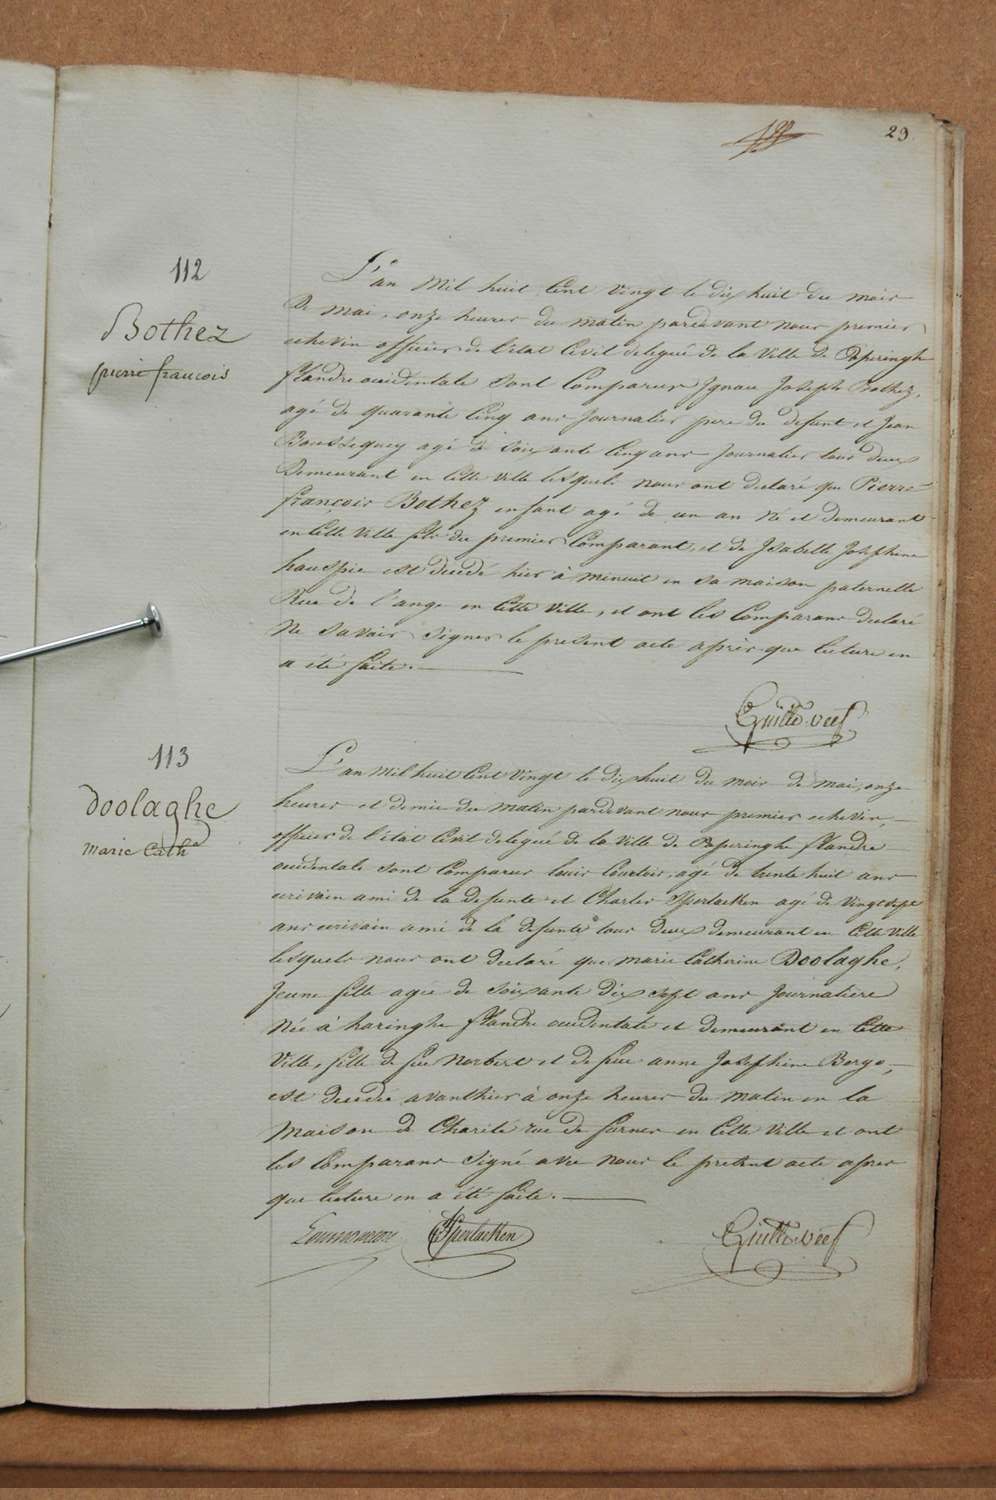 29
112
Bothez
pierre francois
L'an Mil huit Cent Vingt le dix huit du mois
De mai, onze heures du matin pardevant nous premier
echevin officier de l'état Civil delegué de la Ville de Poperinghe
flandre occidentale sont Comparus Ignace Joseph Bothez,
agé de quarante Cinq ans journalier pere du defunt et Jean
agé de soixante Cinq ans journalier tous deux
Demeurant en Cette Ville lesquels nous ont declaré que Pierre
françois Bothez enfant agé de un an Né et demeurant
en Cette Ville fils du premier Comparant, et de Isabelle Josephine
hauspie est decedé hier à minuit en sa maison paternelle
Rue de l'ange en Cette Ville, et ont les Comparans declaré
Ne savoir signer le present acte après que lecture en
a été faite.
113
Doolaghe
Marie Cathe
L'an Mil huit Cent Vingt le dix huit du mois de mai, onze
heures et demie du matin pardevant nous premier echevin,
officier de l'état Civil delegué de la Ville de Poperinghe flandre
occidentale sont Comparus louis agé de trente huit ans
ecrivain ami de la defunte et Charles Sperlaeken agé de Vingt sept
ans ecrivain ami de la defunte tous deux demeurant en Cette Ville
lesquels nous ont declaré que marie Catherine Doolaghe,
Jeune fille agée de soixante dix sept ans Journaliere
Née à haringhe flandre occidentale et demeurant en Cette
Ville, fille de feu Norbert et de feue anne Josephine Borge,
est decedée avanthier à onze heures du matin en la
Maison de Charité rue de furnes en Cette Ville et ont
les Comparans signé avec nous le present acte apres
que lecture en a été faite.
Sperlaeken